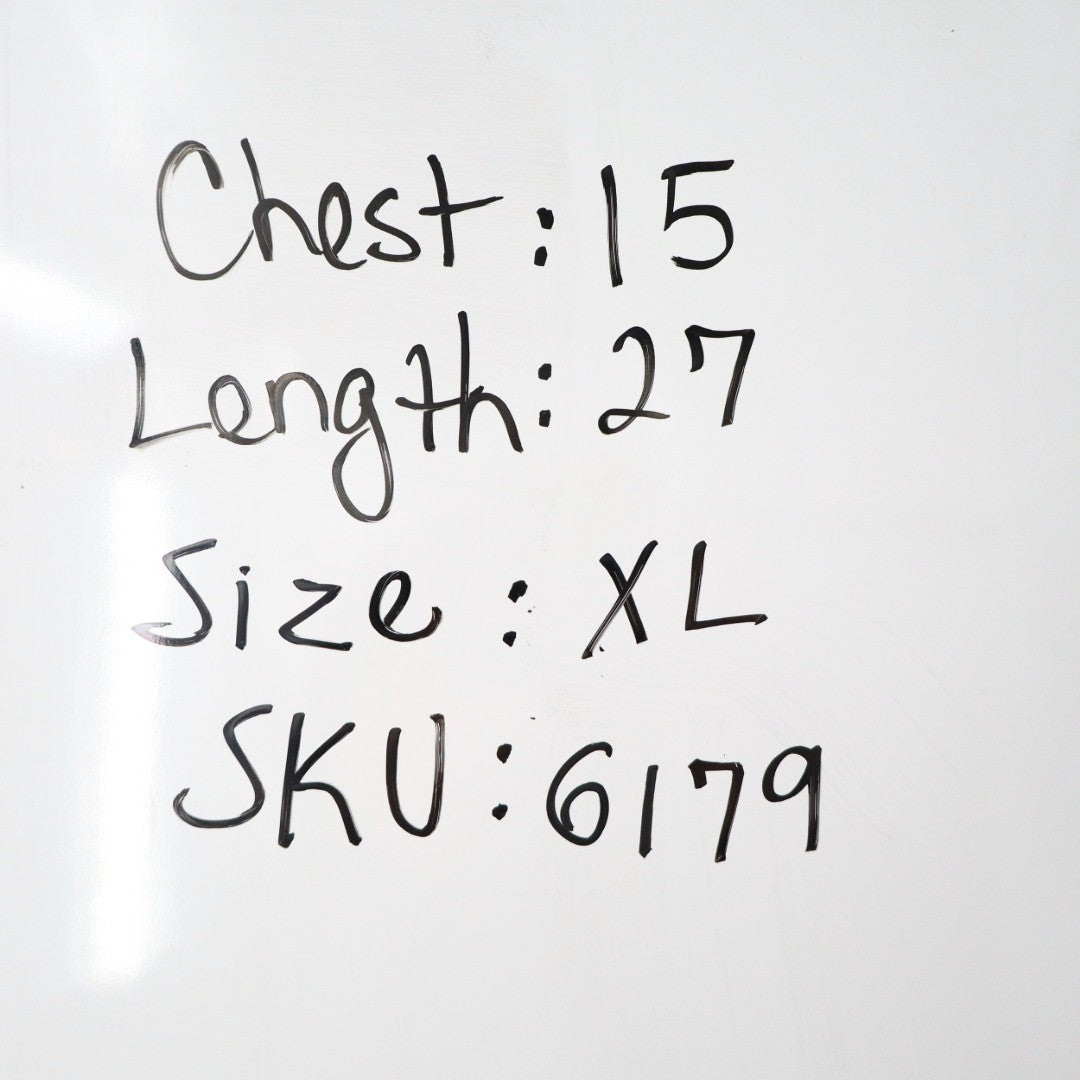 Chest: 15
Length: 27
Size: XL
SKU: 6179